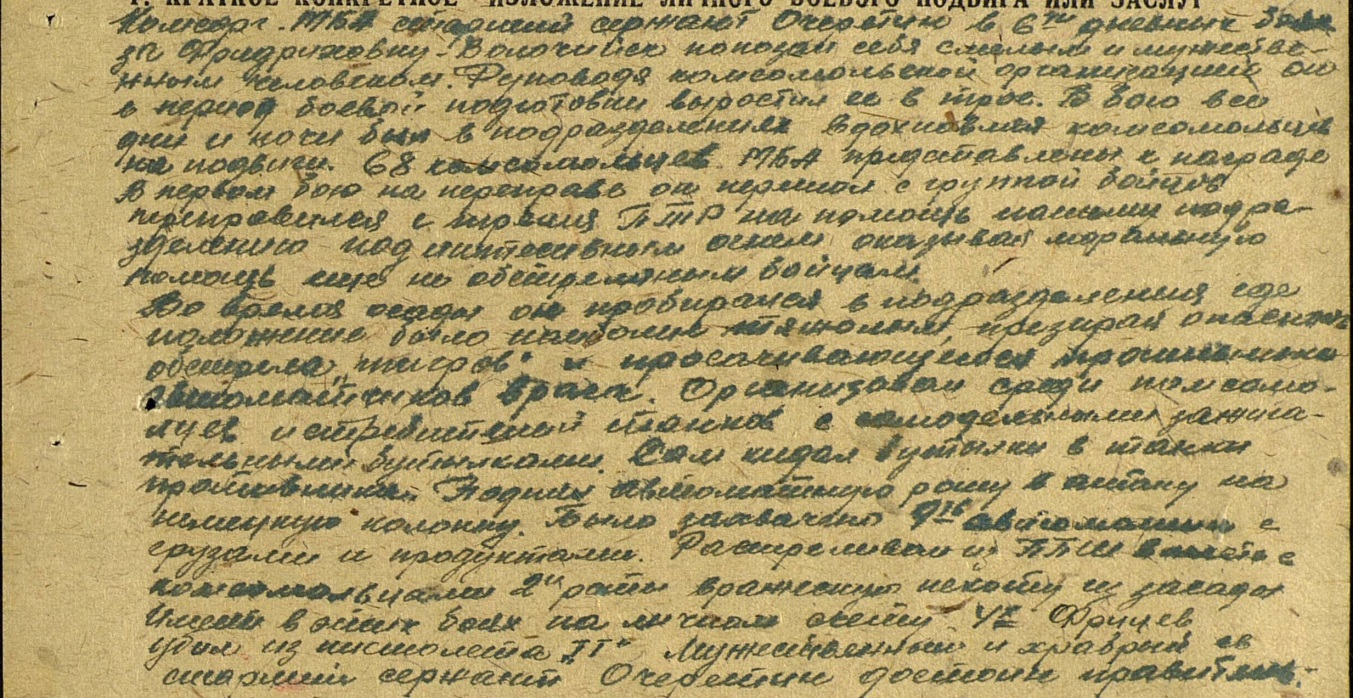 1. КРАТКОЕ КОНКРЕТНОЕ ИЗЛОЖЕНИЕ ЛИЧНОГО БОЕВОГО ПОДВИГА ИЛИ ЗАСЛУГ
Комсорг МБА старший сержант Очеретин в 6ти дневных боях
за Фридриховку-Волочийск показал себя смелым и мужестве-
нным человеком. Руководя комсомольской организацией он
в период боевой подготовки вырастил ее в трое. В бою все
дни и ночи был в подразделениях вдохновляя комсомольцев
на подвиги. 68 комсомольцев МБА представлены к награде
В первом бою на переправе он первым с группой бойцов
переправился с тремя ПТР на помощь нашему подра-
зделению под интенсивным огнем оказывая моральную
помощь еще не обстрелянным бойцам.
Во время осады он пробирался в подразделения где
положение было наиболее тяжелым, презирая опасность
обстрела "тигров" и просачивающихся
автоматчиков врага. Организовал среди комсомо-
льцев истребителей танков с самодельными зажига-
тельными бутылками. Сам кидал бутылки в танки
противника. Поднял автоматную роту в атаку на
немецкую колонну. Было захвачено автомашин с
грузами и продуктами. Расстреливал из ППШ вместе с
комсомольцами 2й роты вражескую пехоту из засады
Имеет в этих боях на личном счету фрицев
убил из пистолета "ТТ". Мужественный и храбрый
старший сержант Очеретин достоин правитель-